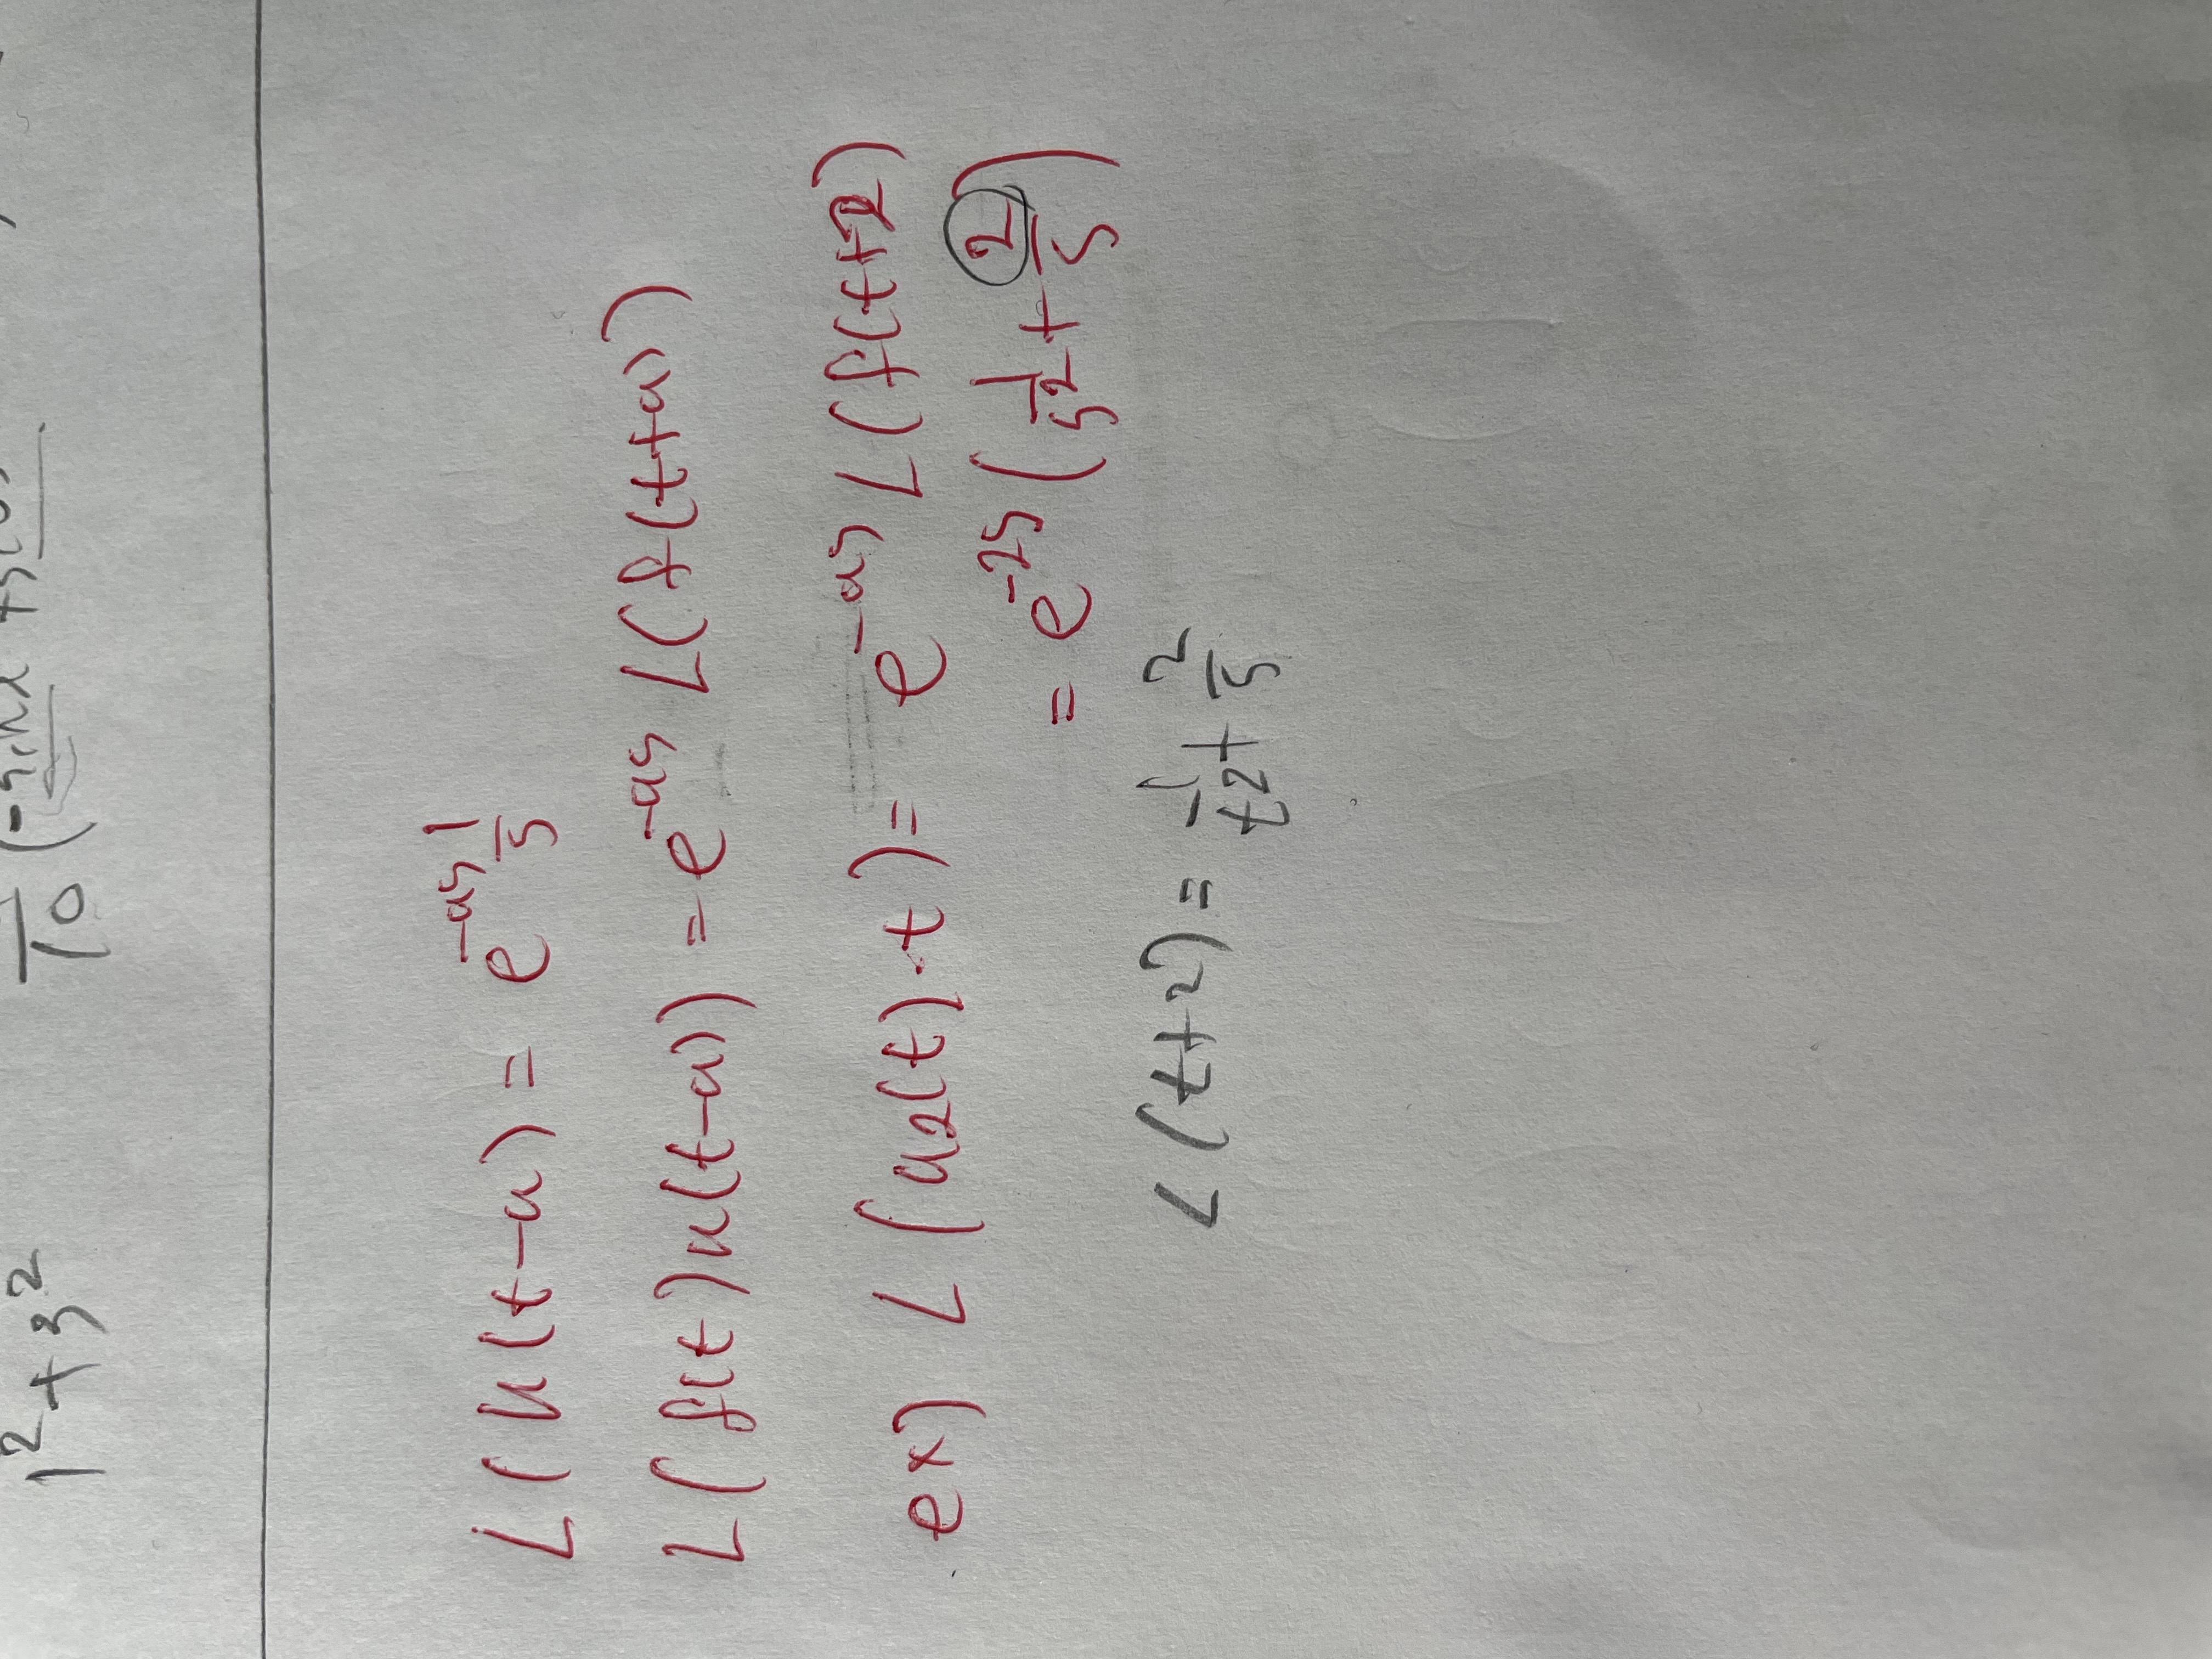 1² + 3²
10 (-sin x + 3
L(u(t-a)) = e^{-as} 1/s
L(f(t)u(t-a)) = e^{-as} L(f(t+a))
ex) L(u₂(t)·t) = e^{-as} L(f(t+2)
= e^{-2s} (1/s² + 2/s)
L(t+2) = 1/t² + 2/s